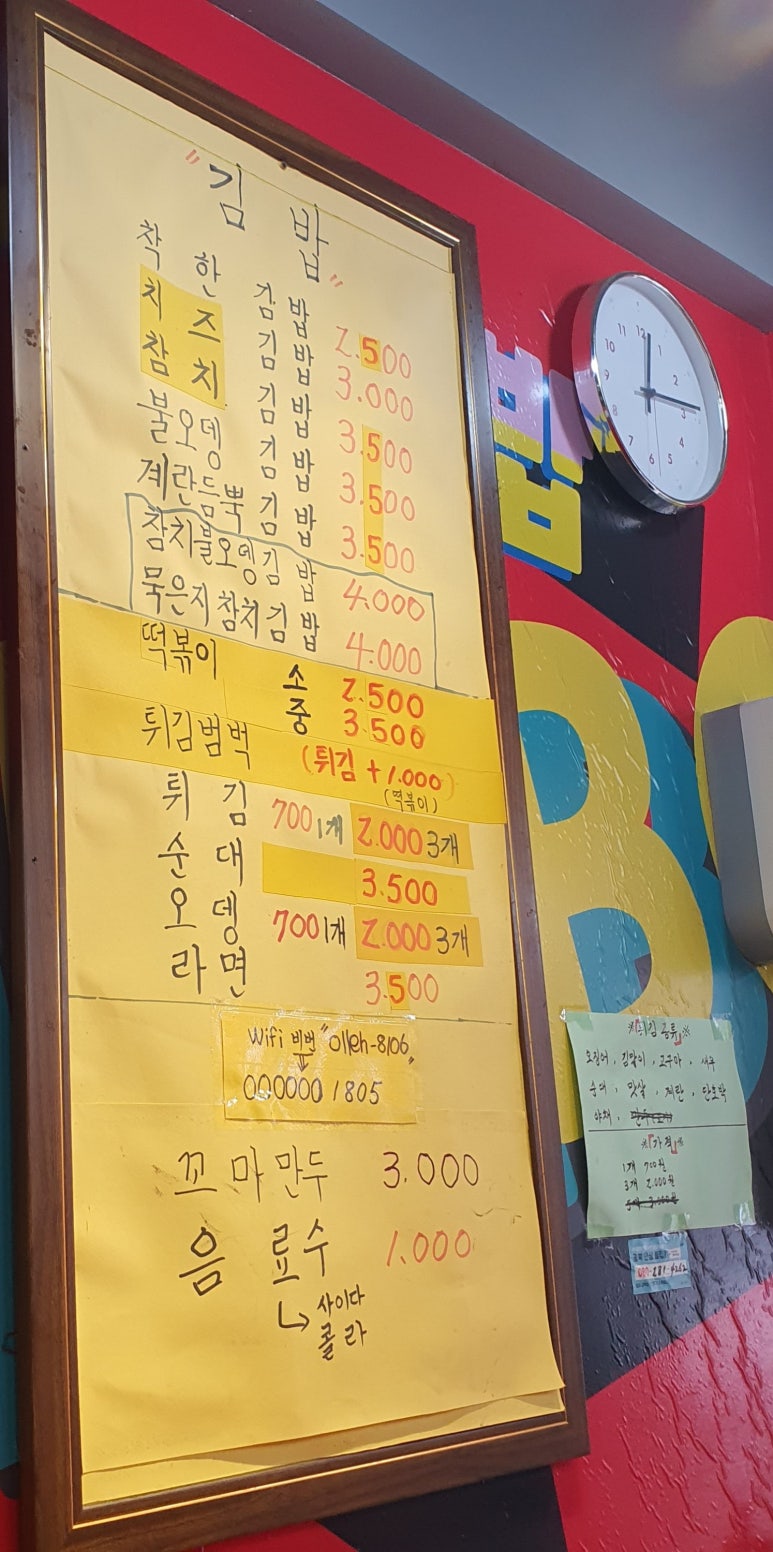 "김 밥"
착 한 김 밥 2.500
치 즈 김 밥 3.000
참 치 김 밥 3.500
불오뎅 김 밥 3.500
계란듬뿍 김 밥 3.500
참치불오뎅김 밥 4.000
묵은지참치김 밥 4.000
떡볶이 소 2.500
중 3.500
튀김범벅 (튀김 + 1.000)
(떡볶이)
튀 김 700 1개 2.000 3개
순 대 3.500
오 뎅 700 1개 2.000 3개
라 면 3.500
wifi 비번 "olleh-8106"
000000 1805
꼬 마 만두 3.000
음 료수 1.000
↳ 사이다
콜 라
밥
12 1 2 3 4 5 6 7 8 9 10 11
B
※『튀김 종류』※
오징어, 김말이, 고구마, 새우
순대, 맛살, 계란, 단호박
야채,
※『가격』※
1개 700원
3개 2.000원
5개 3.000원